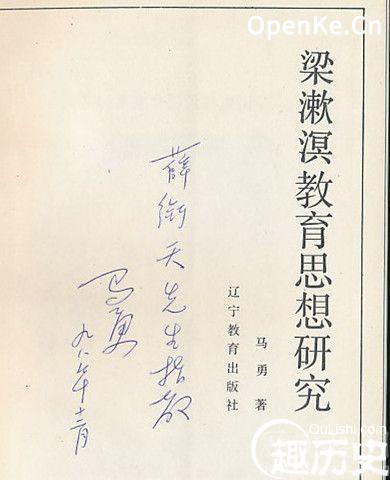 OpenKe.Cn
梁漱溟教育思想研究
马勇 著
辽宁教育出版社
薛衔天先生指教
马勇
九八年十二月
QuLishi.com
趣历史